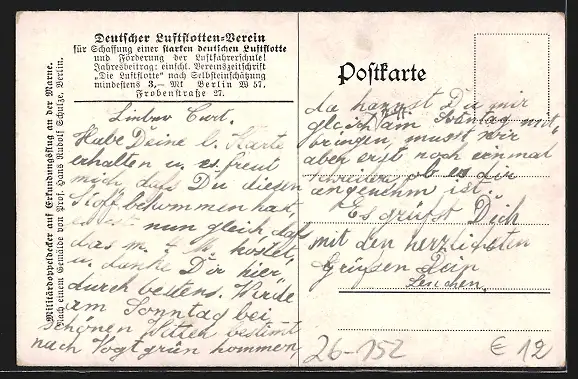 Deutscher Luftflotten-Verein
für Schaffung einer starken deutschen Luftflotte
und Förderung der Luftfahrerschule!
Jahresbeitrag: einschl. Vereinszeitschrift
„Die Luftflotte" nach Selbsteinschätzung
mindestens 3,— Mk Berlin W 57,
Frobenstraße 27.
Militärdoppeldecker auf Erkundungsflug an der Marne.
Nach einem Gemälde von Prof. Hans Rudolf Schulze, Berlin.
Postkarte
Lieber Curt.
Habe Deine l. Karte
erhalten u. es freut
mich, daß Du diesen
Stoff bekommen hast,
nun gleich, daß
das m. 4 M kostet,
u. danke Dir hier
durch bestens. Würde
am Sonntag bei
schönen bestimmt
nach Vogtgrün kommen
da kannst Du mir
gleich am Sonntag mit
bringen, musst mir
aber erst noch einmal
ob es dir
angenehm ist.
Es grüßt Dich
mit den herzlichsten
Grüßen Dein
Lenchen.
26-152
€ 12